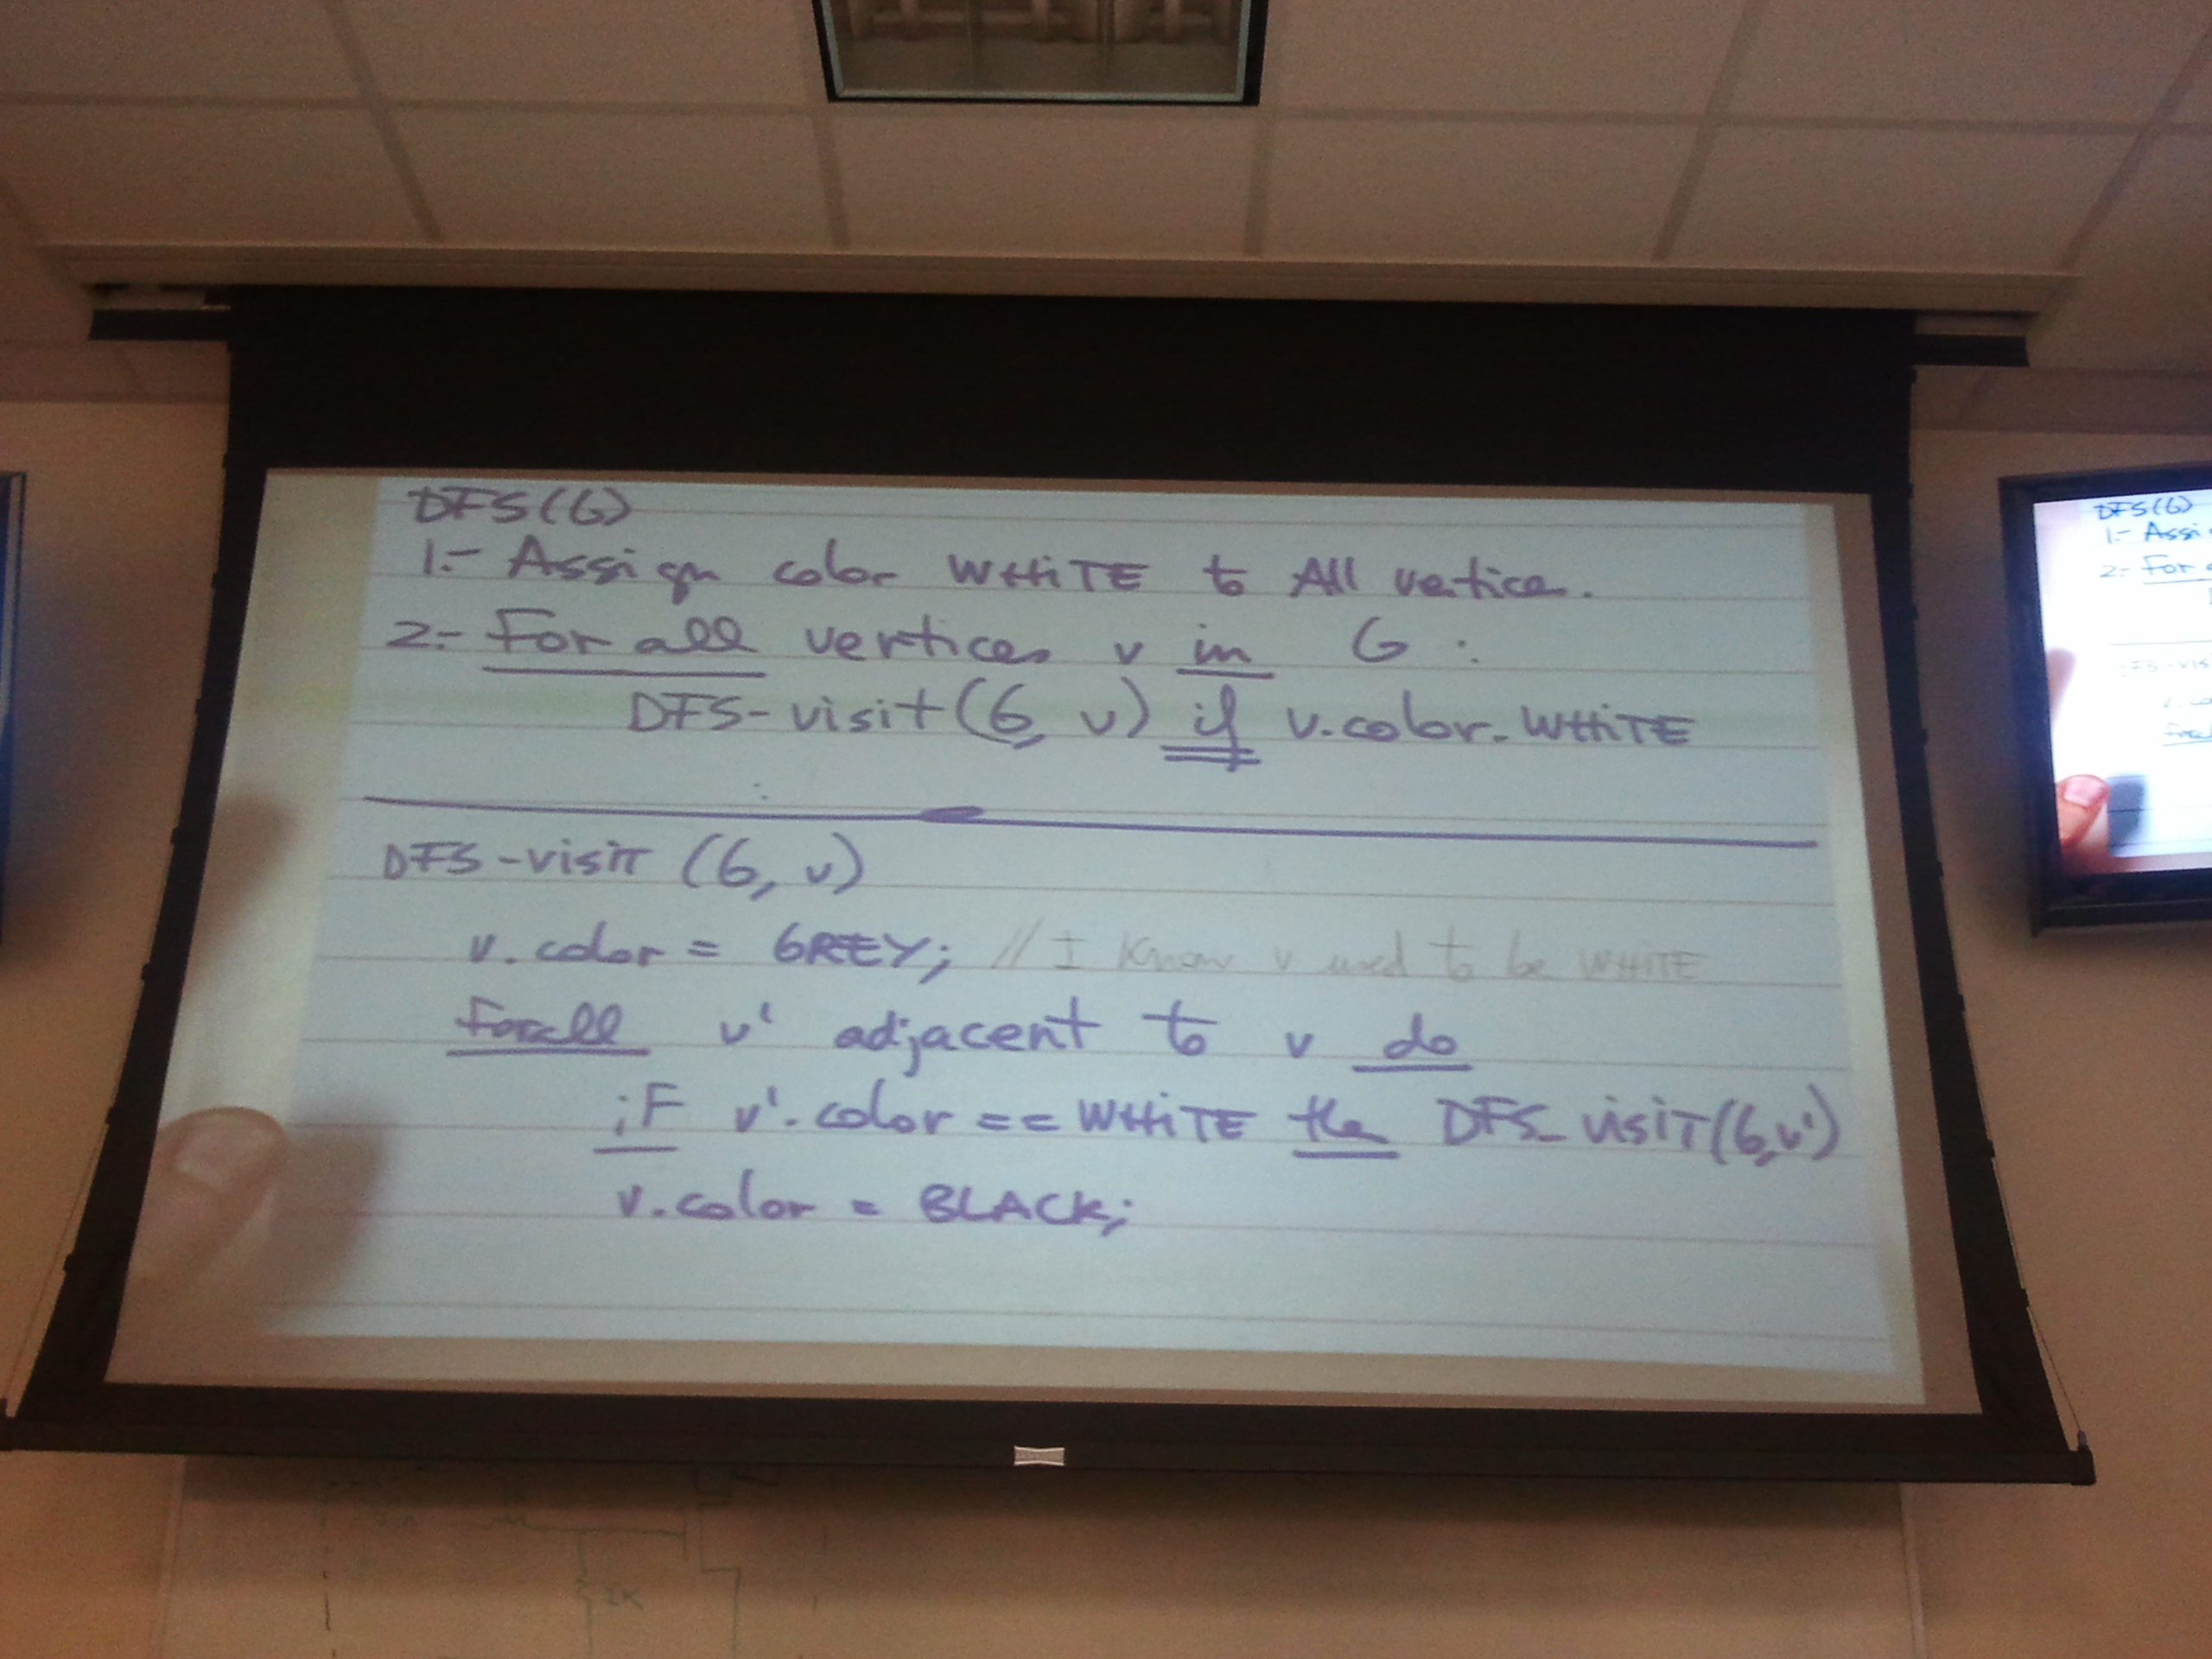 DFS(G)
1.- Assign color WHiTE to All vertice.
2.- For all vertices v in G :
DFS-visit(G, v) if v.color. WHiTE
DFS-visit (G, v)
v.color = GREY; // I know v used to be WHiTE
Forall v' adjacent to v do
iF v'.color == WHiTE the DFS_visiT(G,v')
v.color = BLACK;
DFS(G)
1.- Assi
2.- For
2K